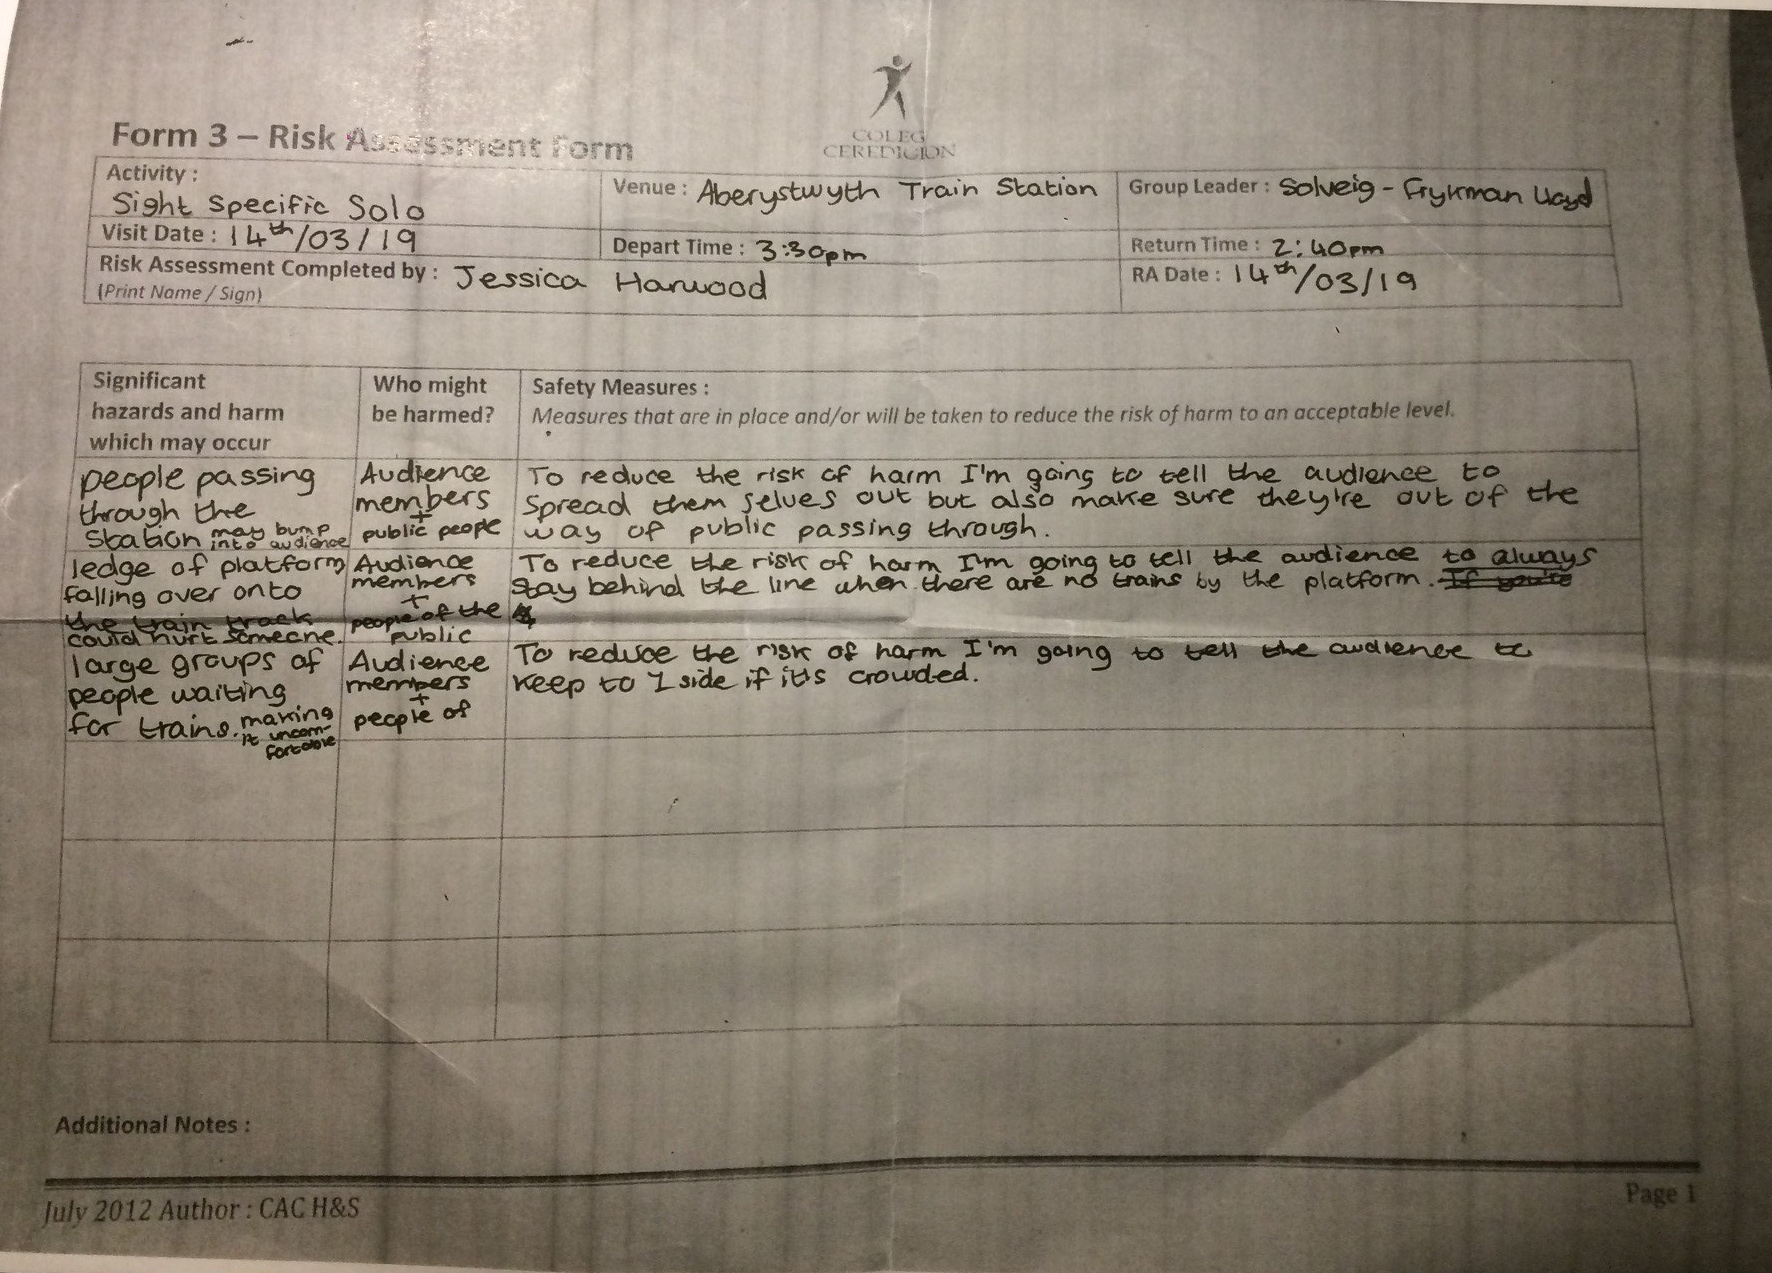 COLEG
CEREDIGION
Form 3 – Risk Assessment Form
Activity :
Sight Specific Solo
Venue : Aberystwyth Train Station
Group Leader : Solveig - Frykman Lloyd
Visit Date : 14th/03/19
Depart Time : 3:30pm
Return Time : 2:40pm
Risk Assessment Completed by : Jessica Harwood
(Print Name / Sign)
RA Date : 14th/03/19
Significant
hazards and harm
which may occur
Who might
be harmed?
Safety Measures :
Measures that are in place and/or will be taken to reduce the risk of harm to an acceptable level.
people passing
through the
Station may bump
into audience
Audience
members
+
public people
To reduce the risk of harm I'm going to tell the audience to
Spread them selves out but also make sure they're out of the
way of public passing through.
ledge of platform
falling over onto
the train track
could hurt someone.
Audience
members
+
people of the
public
To reduce the risk of harm I'm going to tell the audience to always
stay behind the line when there are no trains by the platform. If you're
large groups of
people waiting
for trains. making
it uncom-
fortable
Audience
members
+
people of
To reduce the risk of harm I'm going to tell the audience to
keep to 1 side if it's crowded.
Additional Notes :
July 2012 Author : CAC H&S
Page 1